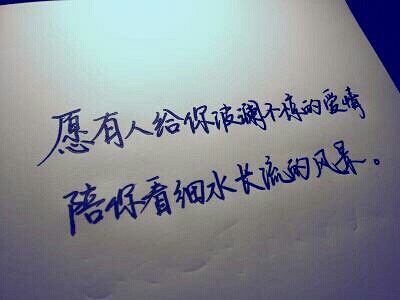 愿有人给你波澜不惊的爱情
陪你看细水长流的风景。